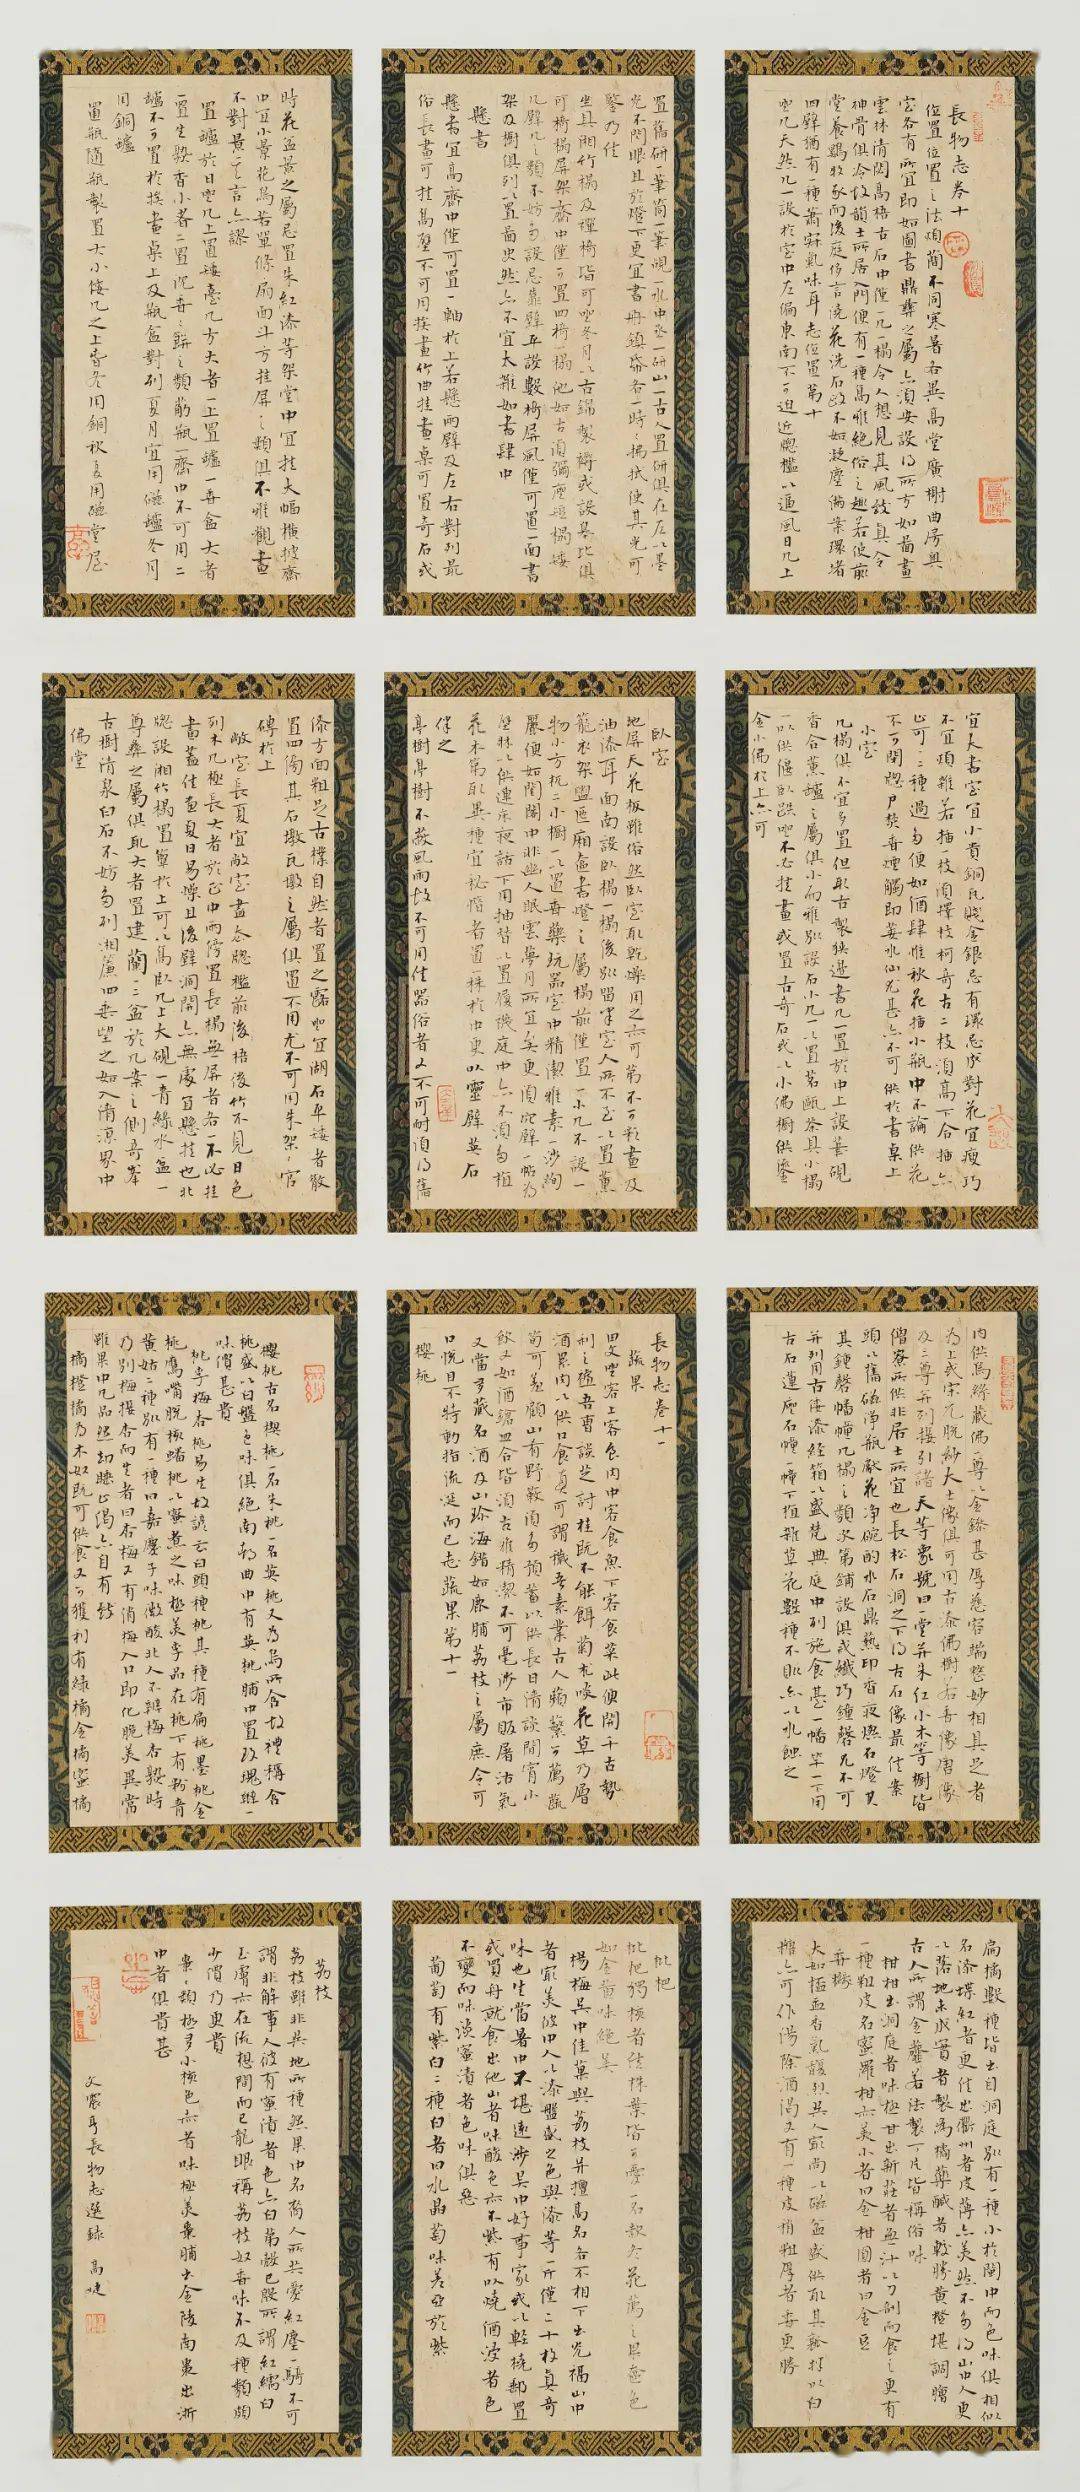 長物志卷十
位置位置之法煩簡不同寒暑各異高堂廣榭曲房奧
室各有所宜即如圖書鼎彝之屬亦須安設得所方如圖畫
雲林清閟高梧古石中僅一几一榻令人想見其風致真令
神骨俱冷故韻士所居入門便有一種高雅絕俗之趣若使前
堂養鷄牧豕而後庭侈言澆花洗石政不如凝塵滿案環堵
四壁猶有一種蕭寂氣味耳志位置第十
坐几天然几一設於室中左偏東南不可迫近窗檻以逼風日几上
置舊研一筆筒一筆覘一水中丞一研山一古人置研俱在左以墨
光不閃眼且於燈下更宜書冊鎮紙各一時時拂拭使其光可
鑒乃佳
坐具湘竹榻及禪椅皆可坐冬月以古錦製褥或設皋比俱
可椅榻屏架齋中僅可置四椅一榻他如古須彌座短榻矮
几壁几之類不妨多設忌靠壁平設數椅屏風僅可置一面書
架及櫥俱列以置圖史然亦不宜太雜如書肆中
懸畫
懸畫宜高齋中僅可置一軸於上若懸兩壁及左右對列最
俗長畫可挂高壁不可用挨畫竹曲挂畫桌可置奇石或
時花盆景之屬忌置朱紅漆等架堂中宜挂大幅橫披齋
中宜小景花鳥若單條扇面斗方挂屏之類俱不雅觀畫
不對景其言亦謬
置爐於日坐几上置矮臺几方大者一上置爐一香盒大者
一置生熟香小者二置沉香香餅之類筯瓶一齋中不可用二
爐不可置於挨畫桌上及瓶盒對列夏月宜用磁爐冬月
用銅爐
置瓶隨瓶製置大小倭几之上春冬用銅秋夏用磁堂屋
宜大書室宜小貴銅瓦賤金銀忌有環忌成對花宜瘦巧
不宜煩雜若插一枝須擇枝柯奇古二枝須高下合插亦
止可一二種過多便如酒肆惟秋花插小瓶中不論供花
不可閉窗戶焚香煙觸即萎水仙尤甚亦不可供於畫桌上
小室
几榻俱不宜多置但取古製狹邊書几一置於中上設筆硯
香合薰爐之屬俱小而雅別設石小几一以置茗甌茶具小榻
一以供偃臥趺坐不必挂畫或置古奇石或以小佛櫥供鎏
金小佛於上亦可
臥室
地屏天花板雖俗然臥室取乾燥用之亦可第不可彩畫及
油漆耳面南設臥榻一榻後別留半室人所不至以置薰
籠衣架盥匜廂奩書燈之屬榻前僅置一小几不設一
物小方杌二小櫥一以置香藥玩器室中精潔雅素一涉絢
麗便如閨閣中非幽人眠雲夢月所宜矣更須穴壁一帖為
壁牀以供連床夜話下用抽替以置履襪庭中亦不須多植
花木第取異種宜秘惜者置一株於中更以靈壁英石
伴之
亭榭亭榭不蔽風雨故不可用佳器俗者又不可耐須得舊
漆方面粗足古樸自然者置之露坐宜湖石平矮者散
置四傍其石墩瓦墩之屬俱置不用尤不可用朱架架官
磚於上
敞室長夏宜敞室盡去窗檻前後梧後竹不見日色
列木几極長大者於正中兩傍置長榻無屏者各一不必挂
畫蓋佳畫夏日易燥且後壁洞開亦無處宜懸挂也北
窗設湘竹榻置簟於上可以高臥几上大硯一青綠水盆一
尊彝之屬俱取大者置建蘭一二盆於几案之側奇峯
古樹清泉白石不妨多列湘簾四垂望之如入清涼界中
佛堂
內供烏絲藏佛一尊以金鏒甚厚慈容端整妙相具足者
為上或宋元脫紗大士像俱可用古漆佛櫥若香像唐像
及三尊并列接引諸天等象號曰一堂并朱紅小木等櫥皆
僧寮所供非居士所宜也長松石洞之下得古石像最佳案
頭以舊磁淨瓶獻花淨碗酌水石鼎爇印香夜燃石燈其
其鍾磬幡幢几榻之類次第鋪設俱戒纖巧鐘磬尤不可
并列用古倭漆經箱以盛梵典庭中列施食臺一幡竿一下用
古石蓮座石幢一幢下植雜草花數種不則亦以水蝕之
長物志卷十一
蔬果
田文坐客上客食肉中客食魚下客食菜此便開千古勢
利之禍吾曹談芝討桂既不能餌菊朮啖花草乃層
酒累肉以供口食真可謂穢吾素業古人蘋蘩可薦蔬
筍可羞顧山肴野蔌須多預蓄以供長日清談閒宵小
飲又如酒鎗皿合皆須古雅精潔不可毫涉市販屠沽氣
又當多藏名酒及山珍海錯如鹿脯荔枝之屬庶令可
口悅目不特動指流涎而已志蔬果第十一
櫻桃
櫻桃古名楔桃一名朱桃一名英桃又為鳥所含故禮稱含
桃盛以白盤色味俱絕南都曲中有英桃脯中置玫瑰瓣一
味價甚貴
桃李梅杏桃易生故諺云白頭種桃其種有扁桃墨桃金
桃鷹嘴脫核蟠桃以蜜煮之味極美李品在桃下有粉青
黃姑二種別有一種曰嘉慶子味微酸北人不辨梅杏熟時
乃別梅接杏而生者曰杏梅又有消梅入口即化脆美異常
雖果中凡品然卻睡止渴亦自有致
橘橙橘為木奴既可供食又可獲利有綠橘金橘蜜橘
扁橘數種皆出自洞庭別有一種小於閩中而色味俱相似
名漆堞紅者更佳出衢州者皮薄亦美然不多得山中人更
以落地未成實者製為橘藥鹹者較勝黃橙堪調膾
古人所謂金虀若法製丁片皆稱俗味
柑柑出洞庭者味極甘出新莊者無汁以刀剖而食之更有
一種粗皮名蜜羅柑亦美小者曰金柑圓者曰金豆
香櫞
大如杯盂香氣馥烈吳人最尚以磁盆盛供取其瓤拌以白
糖亦可作湯除酒渴又有一種皮稍粗厚者香更勝
枇杷
枇杷獨核者佳株葉皆可愛一名款冬花薦之果奩色
如金黃味絕美
楊梅吳中佳菓與荔枝并擅高名各不相下出光福山中
者最美彼中人以漆盤盛之色與漆等一斤僅二十枚真奇
味也生當暑中不堪遠涉吳中好事家或以輕橈郵置
或買舟就食出他山者味酸色亦不紫有以燒酒浸者色
不變而味淡蜜漬者色味俱惡
葡萄有紫白二種白者曰水晶萄味差亞於紫
荔枝
荔枝雖非吳地所種然果中名裔人所共愛紅塵一騎不可
謂非解事人彼有蜜漬者色亦白第殼已殷所謂紅繻白
玉膚亦在流想間而已龍眼稱荔枝奴香味不及種類頗
少價乃更貴
棗棗類極多小核色赤者味極美棗脯出金陵南棗出浙
中者俱貴甚
文震亨長物志選錄 高